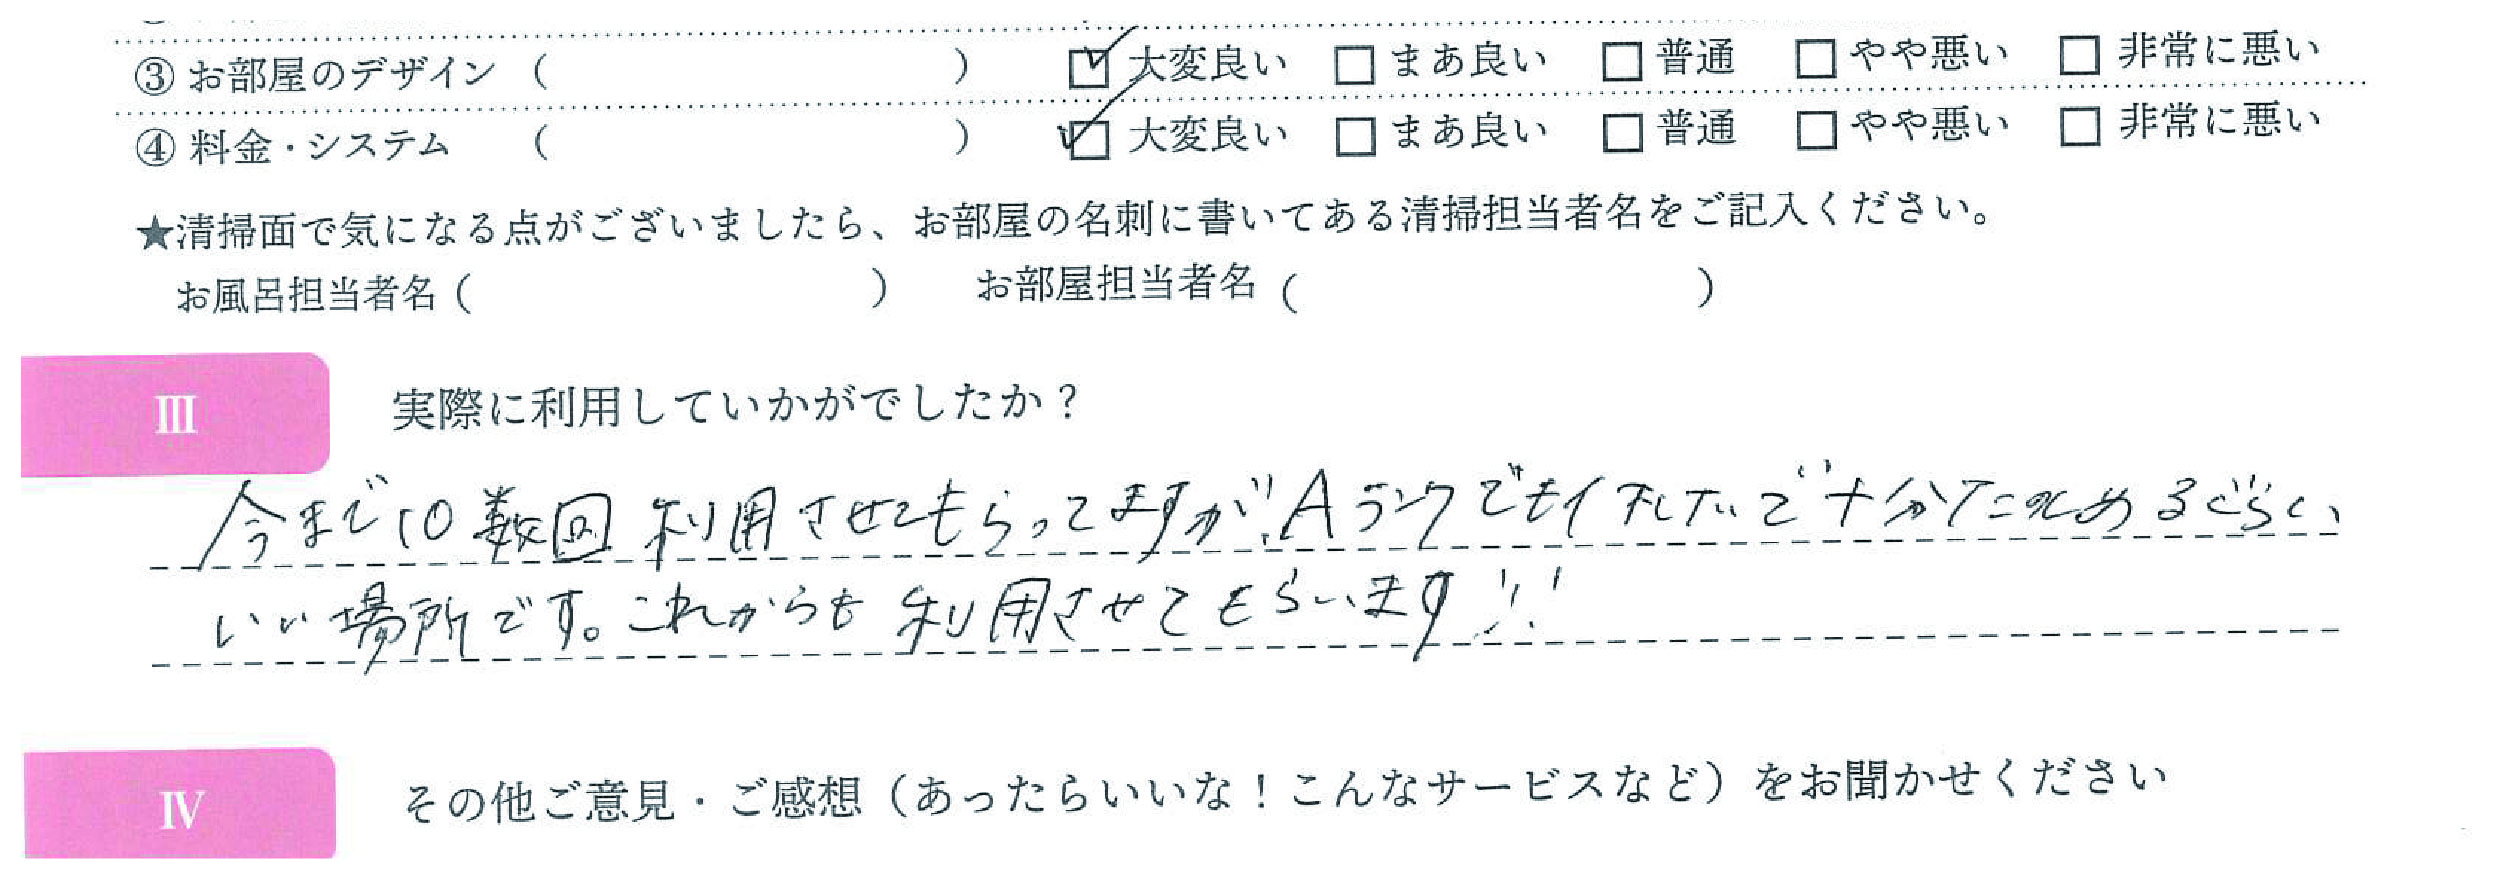 ③ お部屋のデザイン ( ) 大変良い まあ良い 普通 やや悪い 非常に悪い
④ 料金・システム ( ) 大変良い まあ良い 普通 やや悪い 非常に悪い
★清掃面で気になる点がございましたら、お部屋の名刺に書いてある清掃担当者名をご記入ください。
お風呂担当者名 ( ) お部屋担当者名 ( )
III 実際に利用していかがでしたか？
今まで10数回利用させてもらってますが、Aランクでも で十分たのしめるぐらい、
いい場所です。これからも利用させてもらいます!!
IV その他ご意見・ご感想（あったらいいな！こんなサービスなど）をお聞かせください